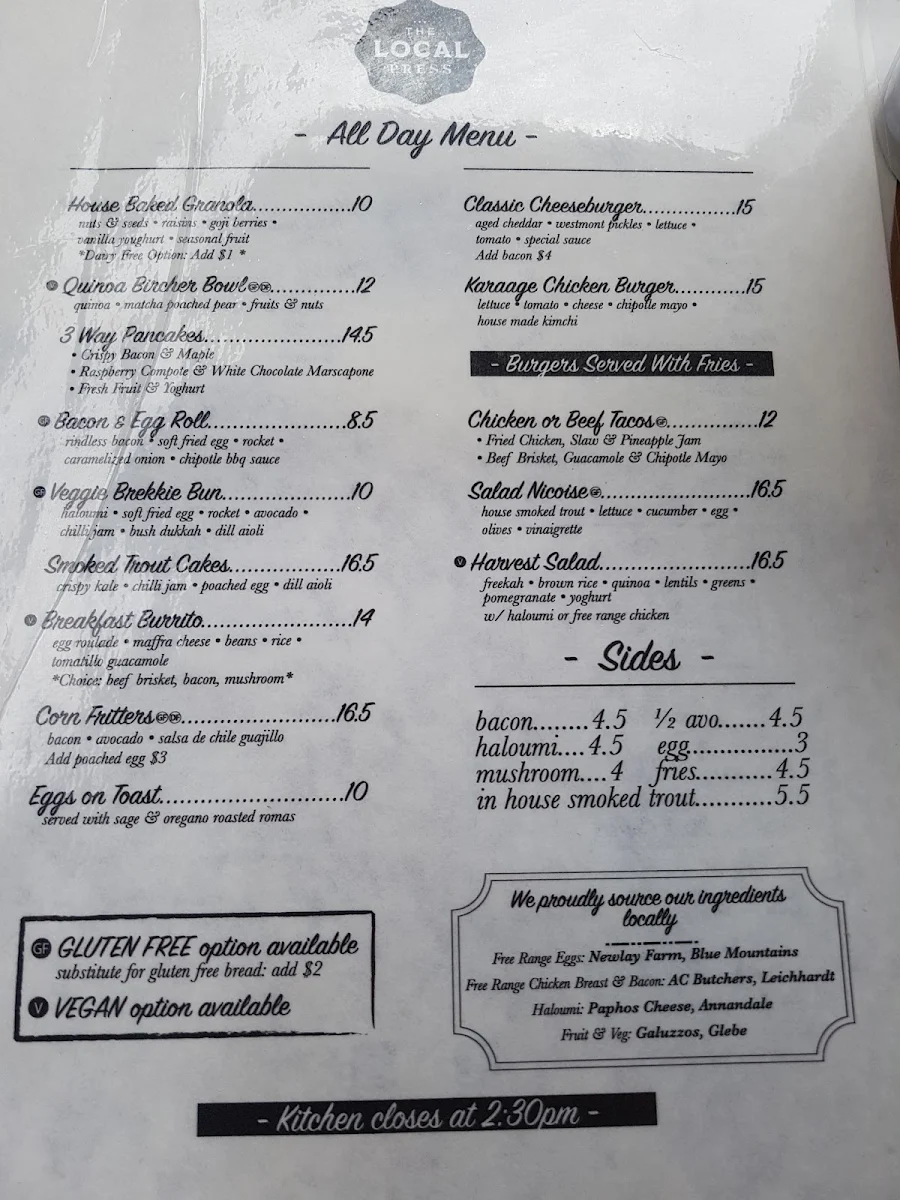 THE
LOCAL
PRESS
- All Day Menu -
House Baked Granola..................10
nuts & seeds • raisins • goji berries •
vanilla youghurt • seasonal fruit
*Dairy Free Option: Add $1 *
V Quinoa Bircher Bowl GF DF...............12
quinoa • matcha poached pear • fruits & nuts
3 Way Pancakes.........................14.5
• Crispy Bacon & Maple
• Raspberry Compote & White Chocolate Marscapone
• Fresh Fruit & Yoghurt
GF Bacon & Egg Roll.........................8.5
rindless bacon • soft fried egg • rocket •
caramelized onion • chipotle bbq sauce
GF Veggie Brekkie Bun.......................10
haloumi • soft fried egg • rocket • avocado •
chilli jam • bush dukkah • dill aioli
Smoked Trout Cakes....................16.5
crispy kale • chilli jam • poached egg • dill aioli
V Breakfast Burrito...........................14
egg roulade • maffra cheese • beans • rice •
tomatillo guacamole
*Choice: beef brisket, bacon, mushroom*
Corn Fritters GF DF...........................16.5
bacon • avocado • salsa de chile guajillo
Add poached egg $3
Eggs on Toast.................................10
served with sage & oregano roasted romas
GF GLUTEN FREE option available
substitute for gluten free bread: add $2
V VEGAN option available
Classic Cheeseburger.................15
aged cheddar • westmont pickles • lettuce •
tomato • special sauce
Add bacon $4
Karaage Chicken Burger.............15
lettuce • tomato • cheese • chipotle mayo •
house made kimchi
- Burgers Served With Fries -
Chicken or Beef Tacos GF.................12
• Fried Chicken, Slaw & Pineapple Jam
• Beef Brisket, Guacamole & Chipotle Mayo
Salad Nicoise GF...........................16.5
house smoked trout • lettuce • cucumber • egg •
olives • vinaigrette
V Harvest Salad...........................16.5
freekah • brown rice • quinoa • lentils • greens •
pomegranate • yoghurt
w/ haloumi or free range chicken
- Sides -
bacon........4.5 ½ avo.......4.5
haloumi....4.5 egg................3
mushroom....4 fries...........4.5
in house smoked trout...........5.5
We proudly source our ingredients
locally
Free Range Eggs: Newlay Farm, Blue Mountains
Free Range Chicken Breast & Bacon: AC Butchers, Leichhardt
Haloumi: Paphos Cheese, Annandale
Fruit & Veg: Galuzzos, Glebe
- Kitchen closes at 2:30pm -